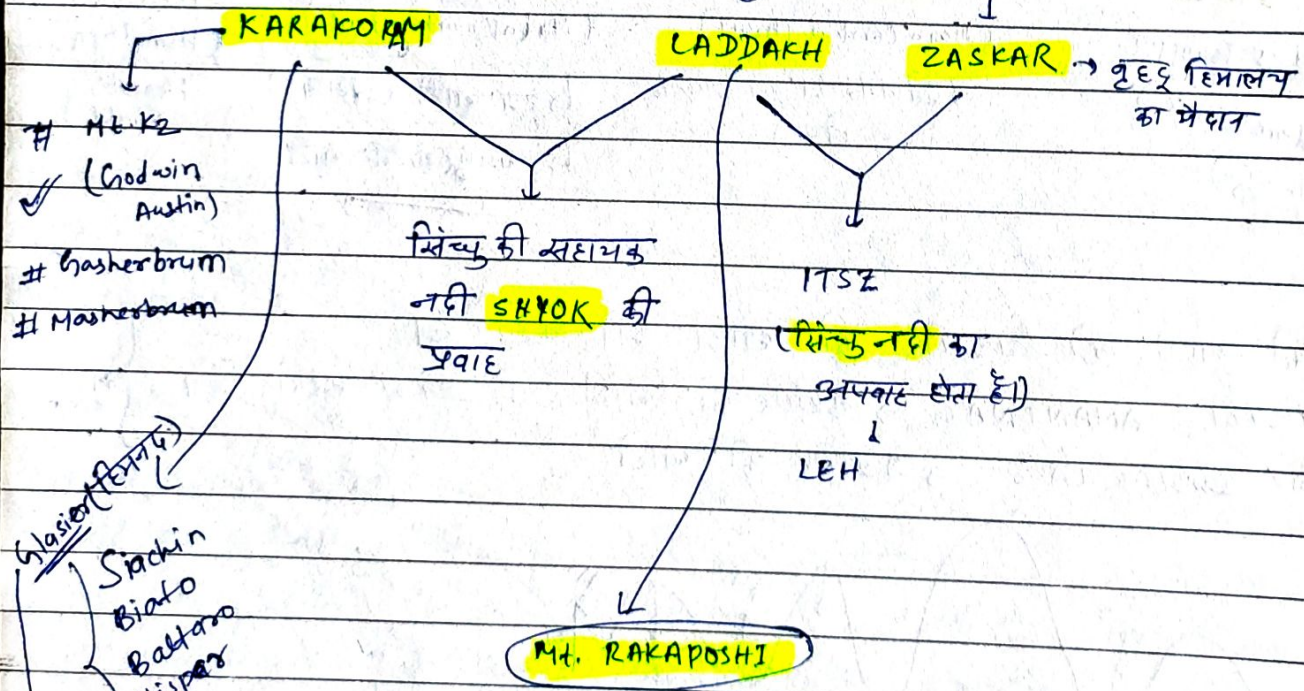 KARAKORAM
LADDAKH
ZASKAR → वृहद् हिमालय
का मैदान
# Mt. K2
(Godwin
Austin)
# Gasherbrum
# Masherbrum
सिन्धु की सहायक
नदी SHYOK की
प्रवाह
ITSZ
(सिन्धु नदी का
अपवाह होता है।)
LEH
Glasior (हिमनद)
Siachin
Biafo
Baltaro
Hispar
Mt. RAKAPOSHI